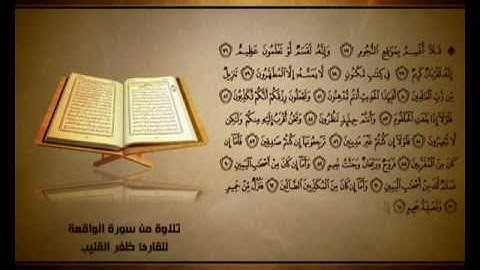 ۞ فَلَآ أُقْسِمُ بِمَوَٰقِعِ ٱلنُّجُومِ ٧٥ وَإِنَّهُۥ لَقَسَمٌ لَّوْ تَعْلَمُونَ عَظِيمٌ ٧٦
إِنَّهُۥ لَقُرْءَانٌ كَرِيمٌ ٧٧ فِى كِتَٰبٍ مَّكْنُونٍ ٧٨ لَّا يَمَسُّهُۥٓ إِلَّا ٱلْمُطَهَّرُونَ ٧٩ تَنزِيلٌ
مِّن رَّبِّ ٱلْعَٰلَمِينَ ٨٠ أَفَبِهَٰذَا ٱلْحَدِيثِ أَنتُم مُّدْهِنُونَ ٨١ وَتَجْعَلُونَ رِزْقَكُمْ أَنَّكُمْ تُكَذِّبُونَ ٨٢
فَلَوْلَآ إِذَا بَلَغَتِ ٱلْحُلْقُومَ ٨٣ وَأَنتُمْ حِينَئِذٍ تَنظُرُونَ ٨٤ وَنَحْنُ أَقْرَبُ إِلَيْهِ مِنكُمْ وَلَٰكِن
لَّا تُبْصِرُونَ ٨٥ فَلَوْلَآ إِن كُنتُمْ غَيْرَ مَدِينِينَ ٨٦ تَرْجِعُونَهَآ إِن كُنتُمْ صَٰدِقِينَ ٨٧ فَأَمَّآ إِن كَانَ
مِنَ ٱلْمُقَرَّبِينَ ٨٨ فَرَوْحٌ وَرَيْحَانٌ وَجَنَّتُ نَعِيمٍ ٨٩ وَأَمَّآ إِن كَانَ مِنْ أَصْحَٰبِ ٱلْيَمِينِ ٩٠
فَسَلَٰمٌ لَّكَ مِنْ أَصْحَٰبِ ٱلْيَمِينِ ٩١ وَأَمَّآ إِن كَانَ مِنَ ٱلْمُكَذِّبِينَ ٱلضَّآلِّينَ ٩٢ فَنُزُلٌ مِّنْ حَمِيمٍ ٩٣
وَتَصْلِيَةُ جَحِيمٍ ٩٤
تلاوة من سورة الواقعة
للقارئ ظفر القليب